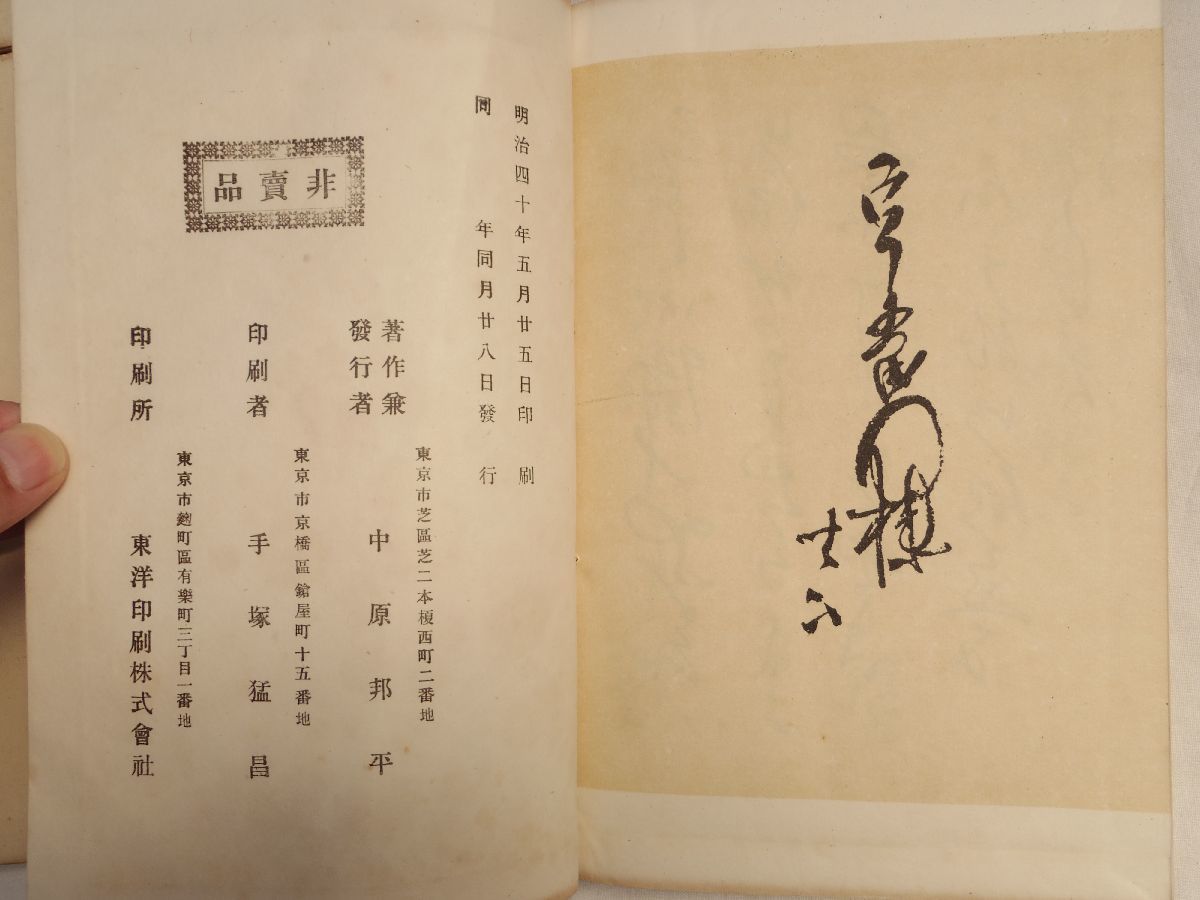 明治四十年五月廿五日印刷
同年同月廿八日發行
非賣品
著作兼
發行者
東京市芝區芝二本榎西町二番地
中原邦平
印刷者
東京市京橋區鎗屋町十五番地
手塚猛昌
印刷所
東京市麴町區有樂町三丁目一番地
東洋印刷株式會社